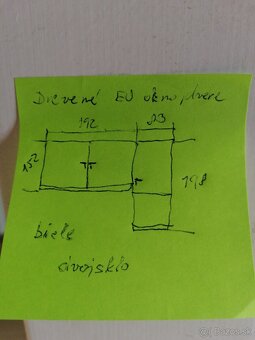 Drevené EU okno dvere
192
93
152
198
biele
dvojsklo
bazos.sk